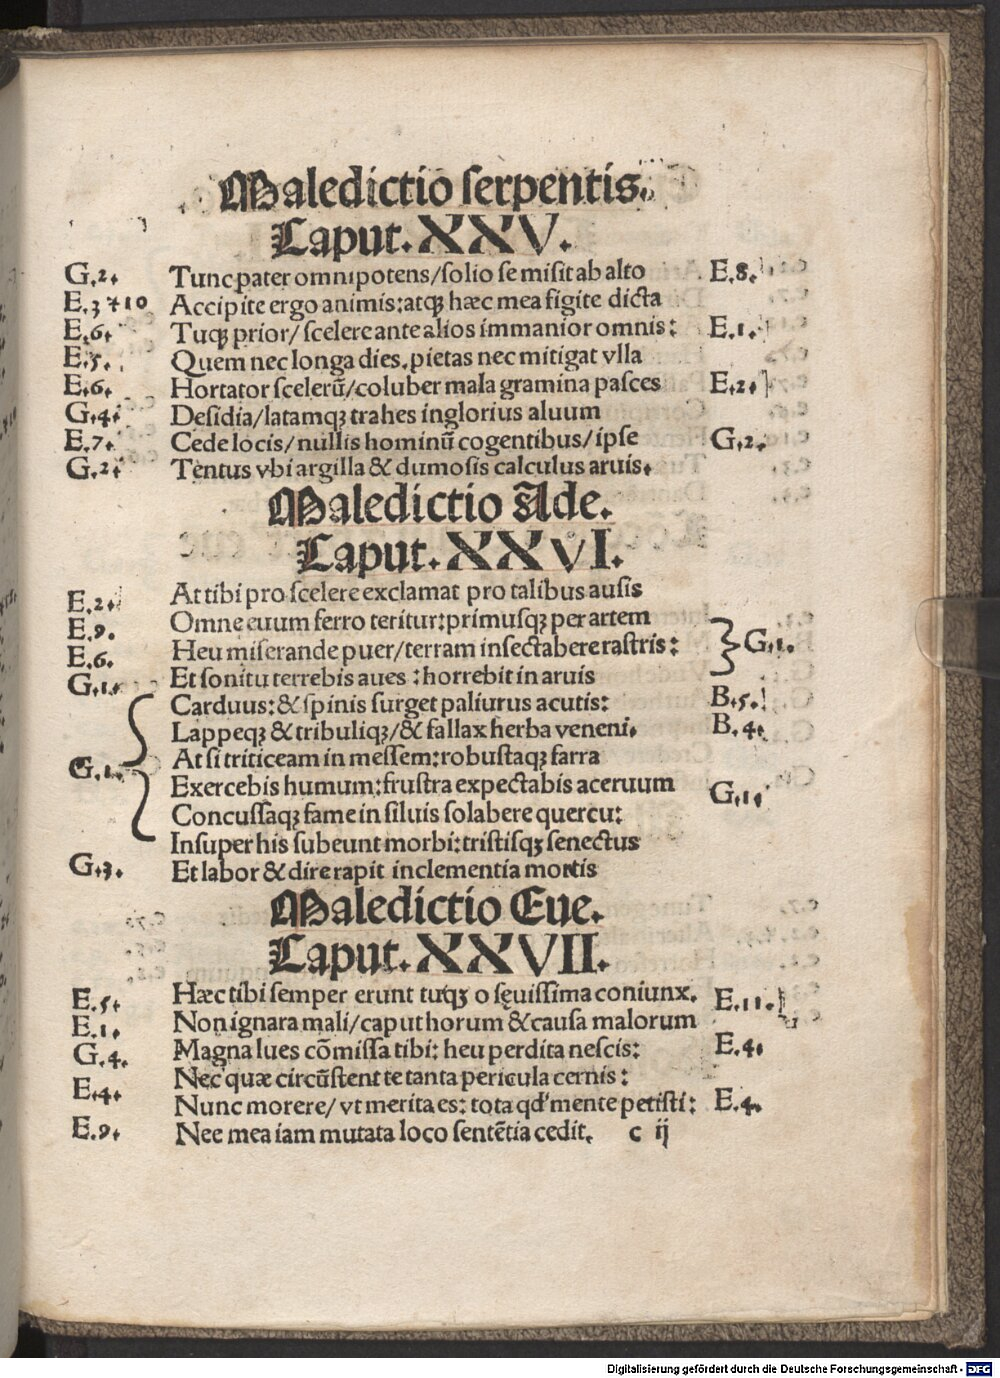 Maledictio serpentis.
Caput. XXV.
G.2. Tunc pater omnipotens/solio se misit ab alto E.8.
E.3 & 10 Accipite ergo animis: atqꝫ hæc mea figite dicta
E.6. Tuqꝫ prior/ scelere ante alios immanior omnis: E.1.
E.5. Quem nec longa dies. pietas nec mitigat vlla
E.6. Hortator scelerū/coluber mala gramina pasces E.2.
G.4. Desidia/latamqꝫ trahes inglorius aluum
E.7. Cede locis/nullis hominū cogentibus/ipse G.2.
G.2. Tentus vbi argilla & dumosis calculus aruis.
Maledictio Ade.
Caput. XXVI.
E.2. At tibi pro scelere exclamat pro talibus ausis
E.9. Omne euum ferro teritur: primusqꝫ per artem
E.6. Heu miserande puer/terram insectabere rastris: G.1.
G.1. Et sonitu terrebis aues : horrebit in aruis
Carduus: & spinis surget paliurus acutis: B.5.
Lappeqꝫ & tribuliqꝫ/& fallax herba veneni. B.4.
G.1. At si triticeam in messem: robustaqꝫ farra
Exercebis humum: frustra expectabis aceruum G.1.
Concussaqꝫ fame in siluis solabere quercu:
Insuper his subeunt morbi: tristisqꝫ senectus
G.3. Et labor & dire rapit inclementia mortis
Maledictio Eue.
Caput. XXVII.
E.5. Hæc tibi semper erunt tuqꝫ o sęuissima coniunx. E.11.
E.1. Non ignara mali/caput horum & causa malorum
G.4. Magna lues cōmissa tibi: heu perdita nescis: E.4.
Nec quæ circūstent te tanta pericula cernis :
E.4. Nunc morere/ vt merita es: tota qd' mente petisti: E.4.
E.9. Nec mea iam mutata loco sentētia cedit. c ij
Digitalisierung gefördert durch die Deutsche Forschungsgemeinschaft - DFG